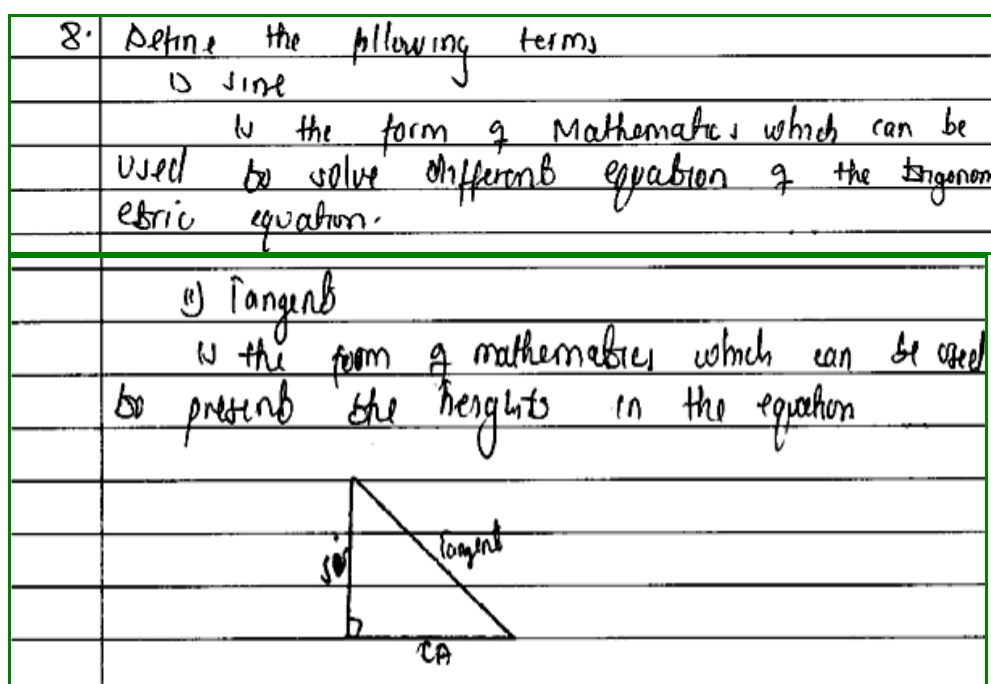 8. Define the following terms
i) sine
is the form of Mathematics which can be
used to solve different equation of the trigonom
etric equation.
ii) Tangent
is the form of mathematics which can be used
to present the heights in the equation
Tangent
CA